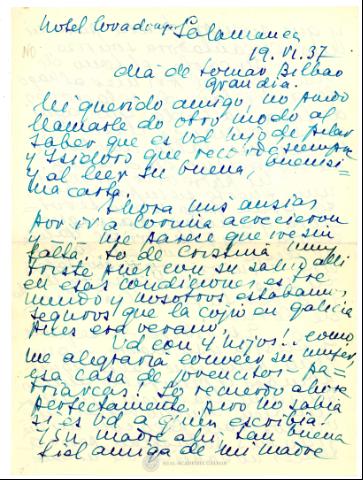 Hotel Covadonga Salamanca
19. VI. 37
día de tomar Bilbao
gran día.
Mi querido amigo, no puedo
llamarle de otro modo al
saber que es Vd hijo de Pilar
y Isidoro que recordé siempre
y al leer su buena, buenísi-
ma carta.
Ahora mis ansias
por ir a Coruña acrecieron
y me parece que iré sin
falta. Lo de Cristina muy
triste pues con su salud allí
en esas condiciones es tre-
mendo y nosotros estábamos
seguros que la cojió en Galicia
pues era verano.
Vd con 4 hijos!. como
me alegraría conocer su mujer,
esa casa de jovencitos pa-
triarcas! Lo recuerdo ahora
perfectamente, pero no sabía
si es Vd a quien escribía!
Su madre ahí, tan buena
fiel amiga de mi madre
REAL ACADEMIA GALEGA